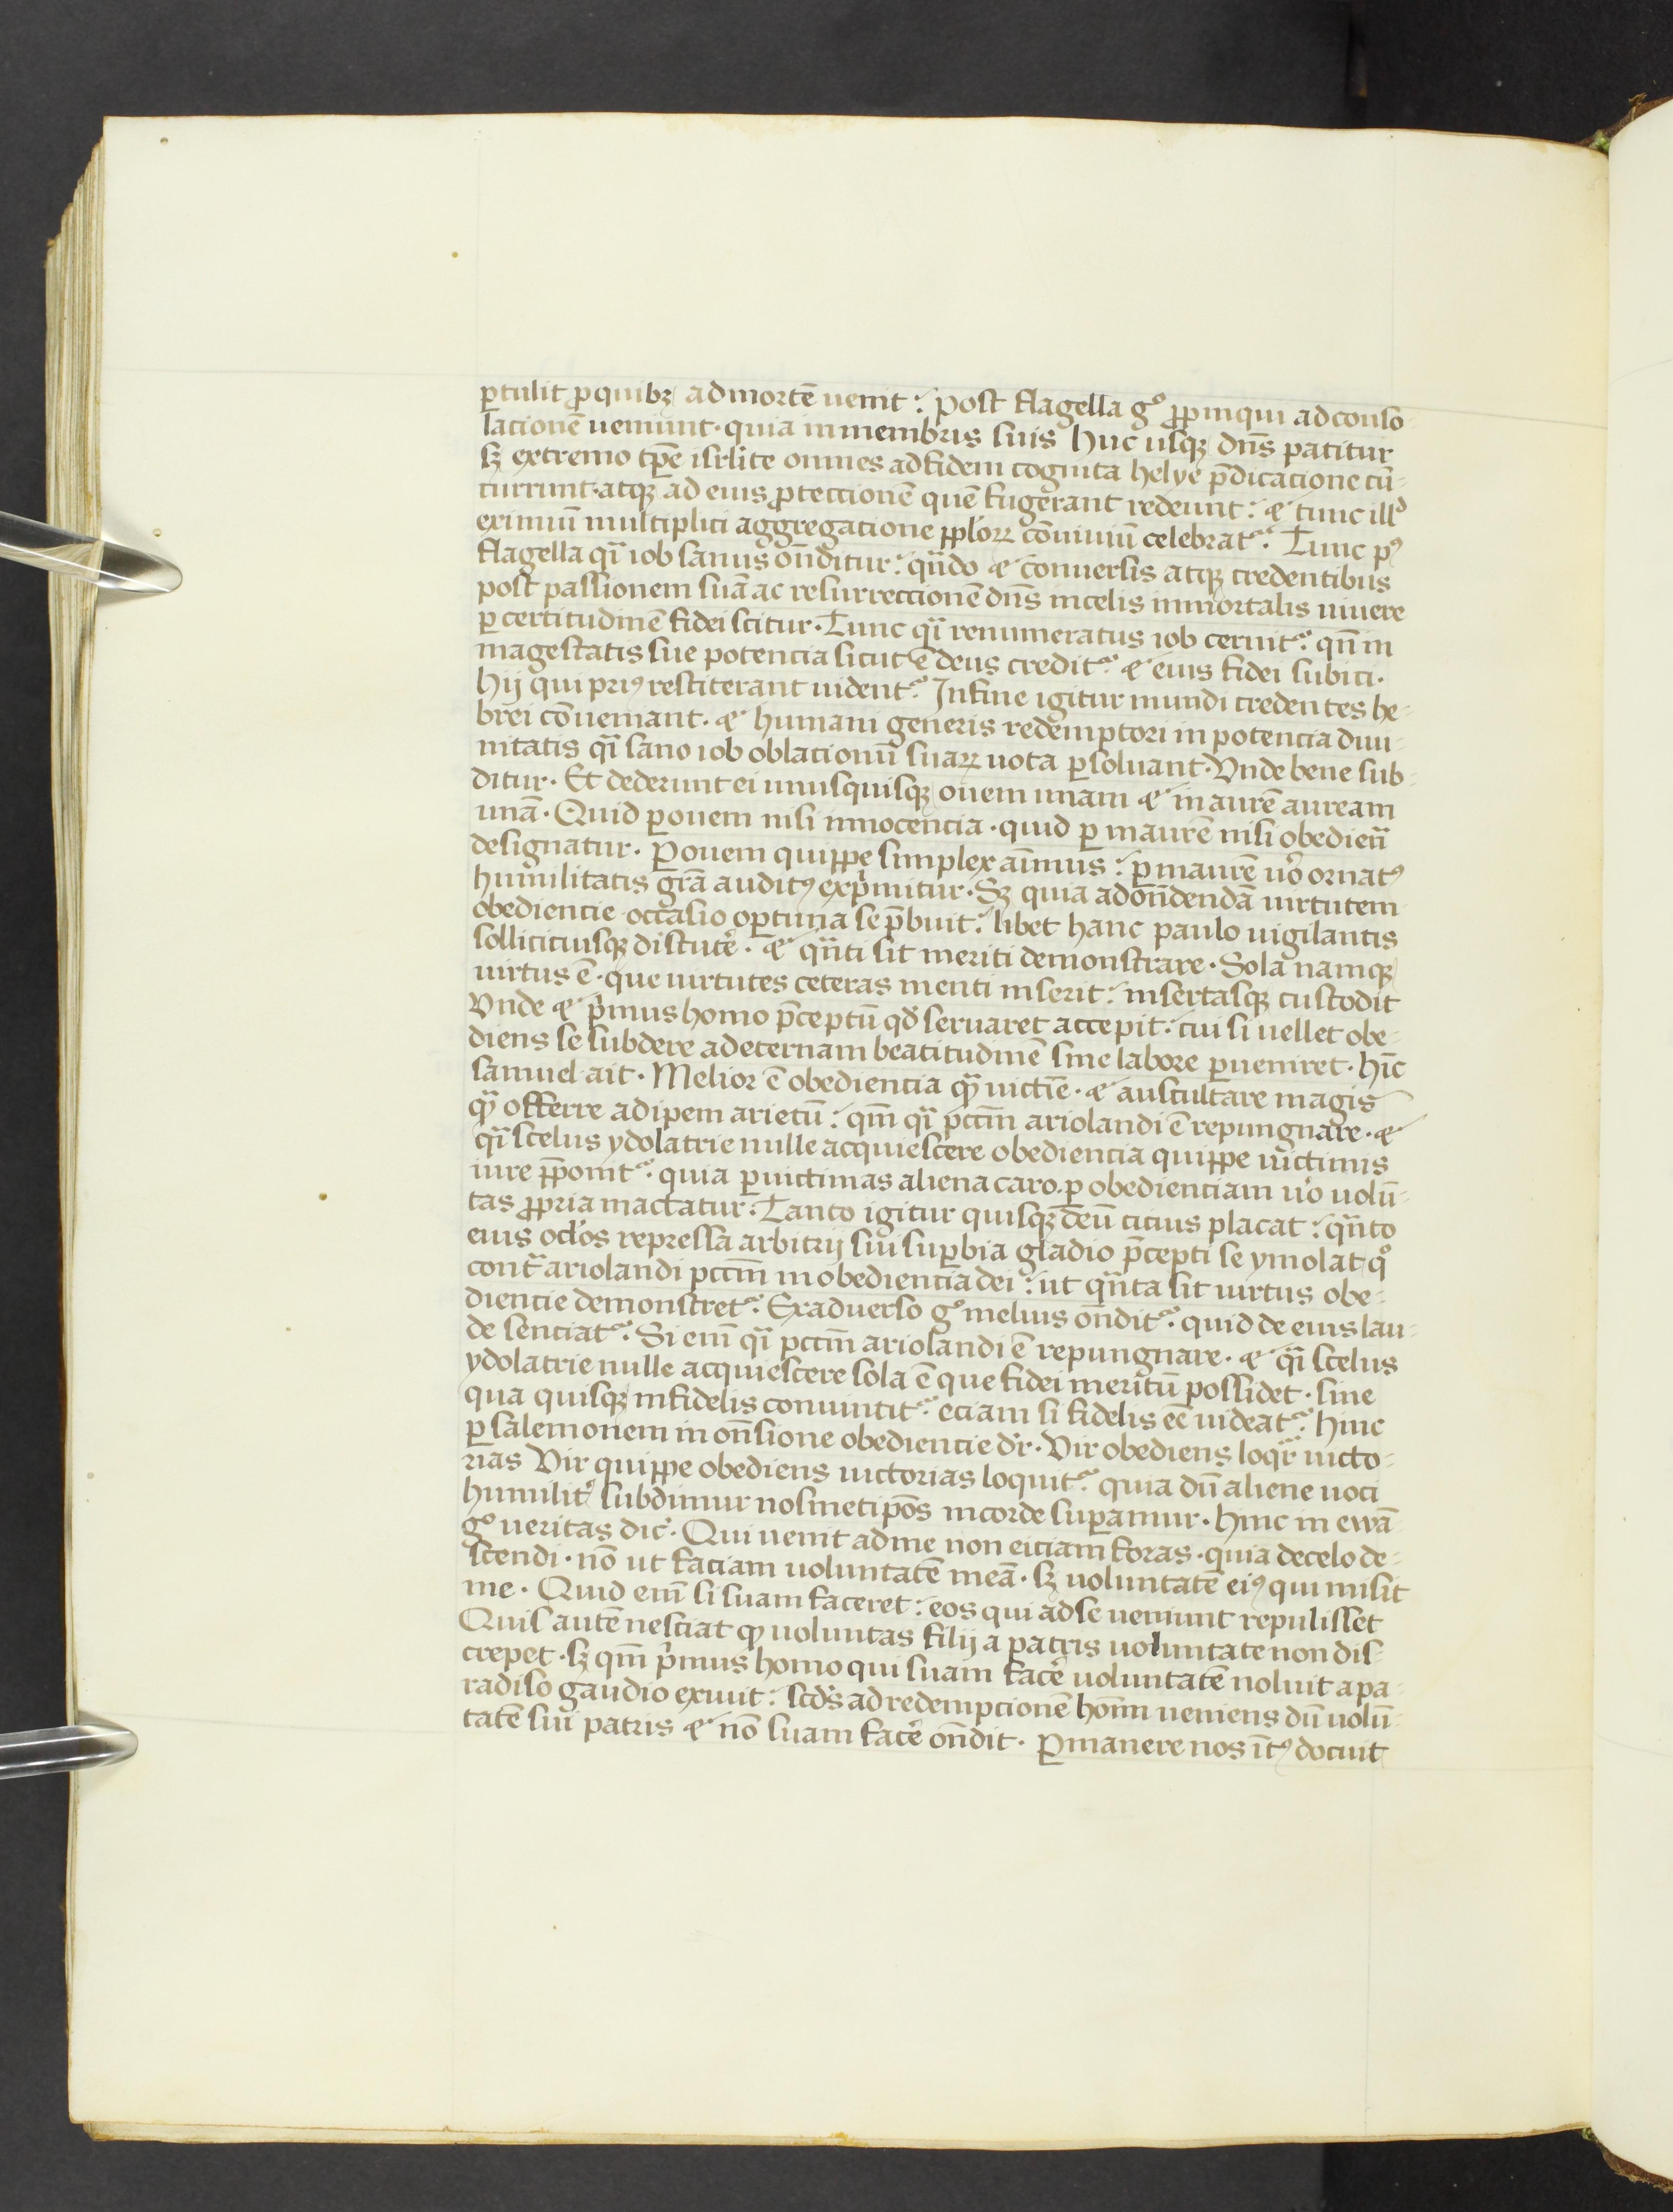 ꝑtulit ꝓ quibꝫ ad mortē uenit: post flagella gͦ ꝓpinqui ad conso
lacionē ueniunt· quia in membris suis huc usqꝫ dn̄s patitur
sꝫ extremo tp̄e isrl'ite omnes ad fidem cognita helye p̄dicacione cū-
currunt· atqꝫ ad eius ꝓteccionē quē fugerant redeunt: et tunc ill'd
eximiū multiplici aggregacione pplo'ꝝ cōuiuiū celebrat᷑: Tunc pꝰ
flagella qͣi iob sanus on̄ditur: qn̄do et conuersis atqꝫ credentibus
post passionem suā ac resurreccionē dn̄s in celis inmortalis uiuere
ꝑ certitudinē fidei scitur· Tunc qͣi renumeratus iob cernit᷑· qn̄ in
magestatis sue potencia sicut ē deus credit᷑· et eius fidei subici·
hij qui priꝰ restiterant uident᷑· In fine igitur mundi credentes he-
brei cōueniant· et humani generis redemptori in potencia diui-
nitatis qͣi sano iob oblacionū suaꝝ uota ꝑsoluant· Vnde bene sub-
ditur· Et dederunt ei unusquisqꝫ ouem unam et inaurē auream
unā· Quid ꝑ ouem nisi innocencia· quid ꝑ inaurē nisi obediencī
designatur· Ꝑ ouem quippe simplex aīmus: ꝑ inaurē uo' ornatꝰ
humilitatis grā auditꝰ expͥmitur· Sꝫ quia ad on̄dendā uirtutem
obediencie occasio oꝑtuna se p̄buit: libet hanc paulo uigilantis
sollicitiusqꝫ discute'· et qn̄ti sit meriti demonstrare· Sola namqꝫ
uirtus ē· que uirtutes ceteras menti inserit: insertasqꝫ custodit
Vnde et pͥmus homo p̄ceptū qd̄ seruaret accepit: cui si uellet obe-
diens se subdere ad eternam beatitudinē sine labore ꝑueniret· hīc
samuel ait· Melior ē obediencia qͣ uictīe· et auscultare magis
qͣ offerre adipem arietū: qm̄ qͣi pccm̄ ariolandi ē repungnare· et
qͣi scelus ydolatrie nulle acquiescere obediencia quippe uictimis
iure p̄ponit᷑· quia ꝑ uictimas aliena caro· ꝑ obedienciam uo' uolū-
tas ꝓpria mactatur: Tanto igitur quisqꝫ deū citius placat: qn̄to
eius oclo's repressa arbitrij sui suꝑbia gladio p̄cepti se ymolat qͦ
contͣ ariolandi pccm̄ inobediencia dei: ut qn̄ta sit uirtus obe-
diencie demonstret᷑· Ex aduerso gͦ melius on̄dit᷑· quid de eius lau-
de senciat᷑· Si enī qͣi pccm̄ ariolandi ē repungnare· et qͣi scelus
ydolatrie nulle acquiescere sola ē que fidei meritū possidet· sine
qua quisqꝫ infidelis conuincit᷑· eciam si fidelis eē uideat᷑· hinc
ꝑ salemonem in on̄sione obediencie dr'· Vir obediens loqr̄ uicto-
rias Vir quippe obediens uictorias loquit᷑· quia dū aliene uoci
humilit' subdimur nosmetip̄os in corde suꝑamur· hinc in ewā
gͦ ueritas dic'· Qui uenit ad me non eiciam foras· quia de celo de-
scendi· nō ut faciam uoluntatē meā· sꝫ uoluntatē eiꝰ qui misit
me· Quid enī si suam faceret: eos qui ad se ueniunt repulisset
Quis autē nesciat qͦ uoluntas filij a patris uoluntate non dis-
crepet· sꝫ qm̄ pͥmus homo qui suam face' uoluntatē noluit a pa-
radiso gaudio exiuit: scd's ad redempcionē hom̄ ueniens dū uolū-
tatē sui patris et nō suam face' on̄dit· Ꝑmanere nos īt' docuit